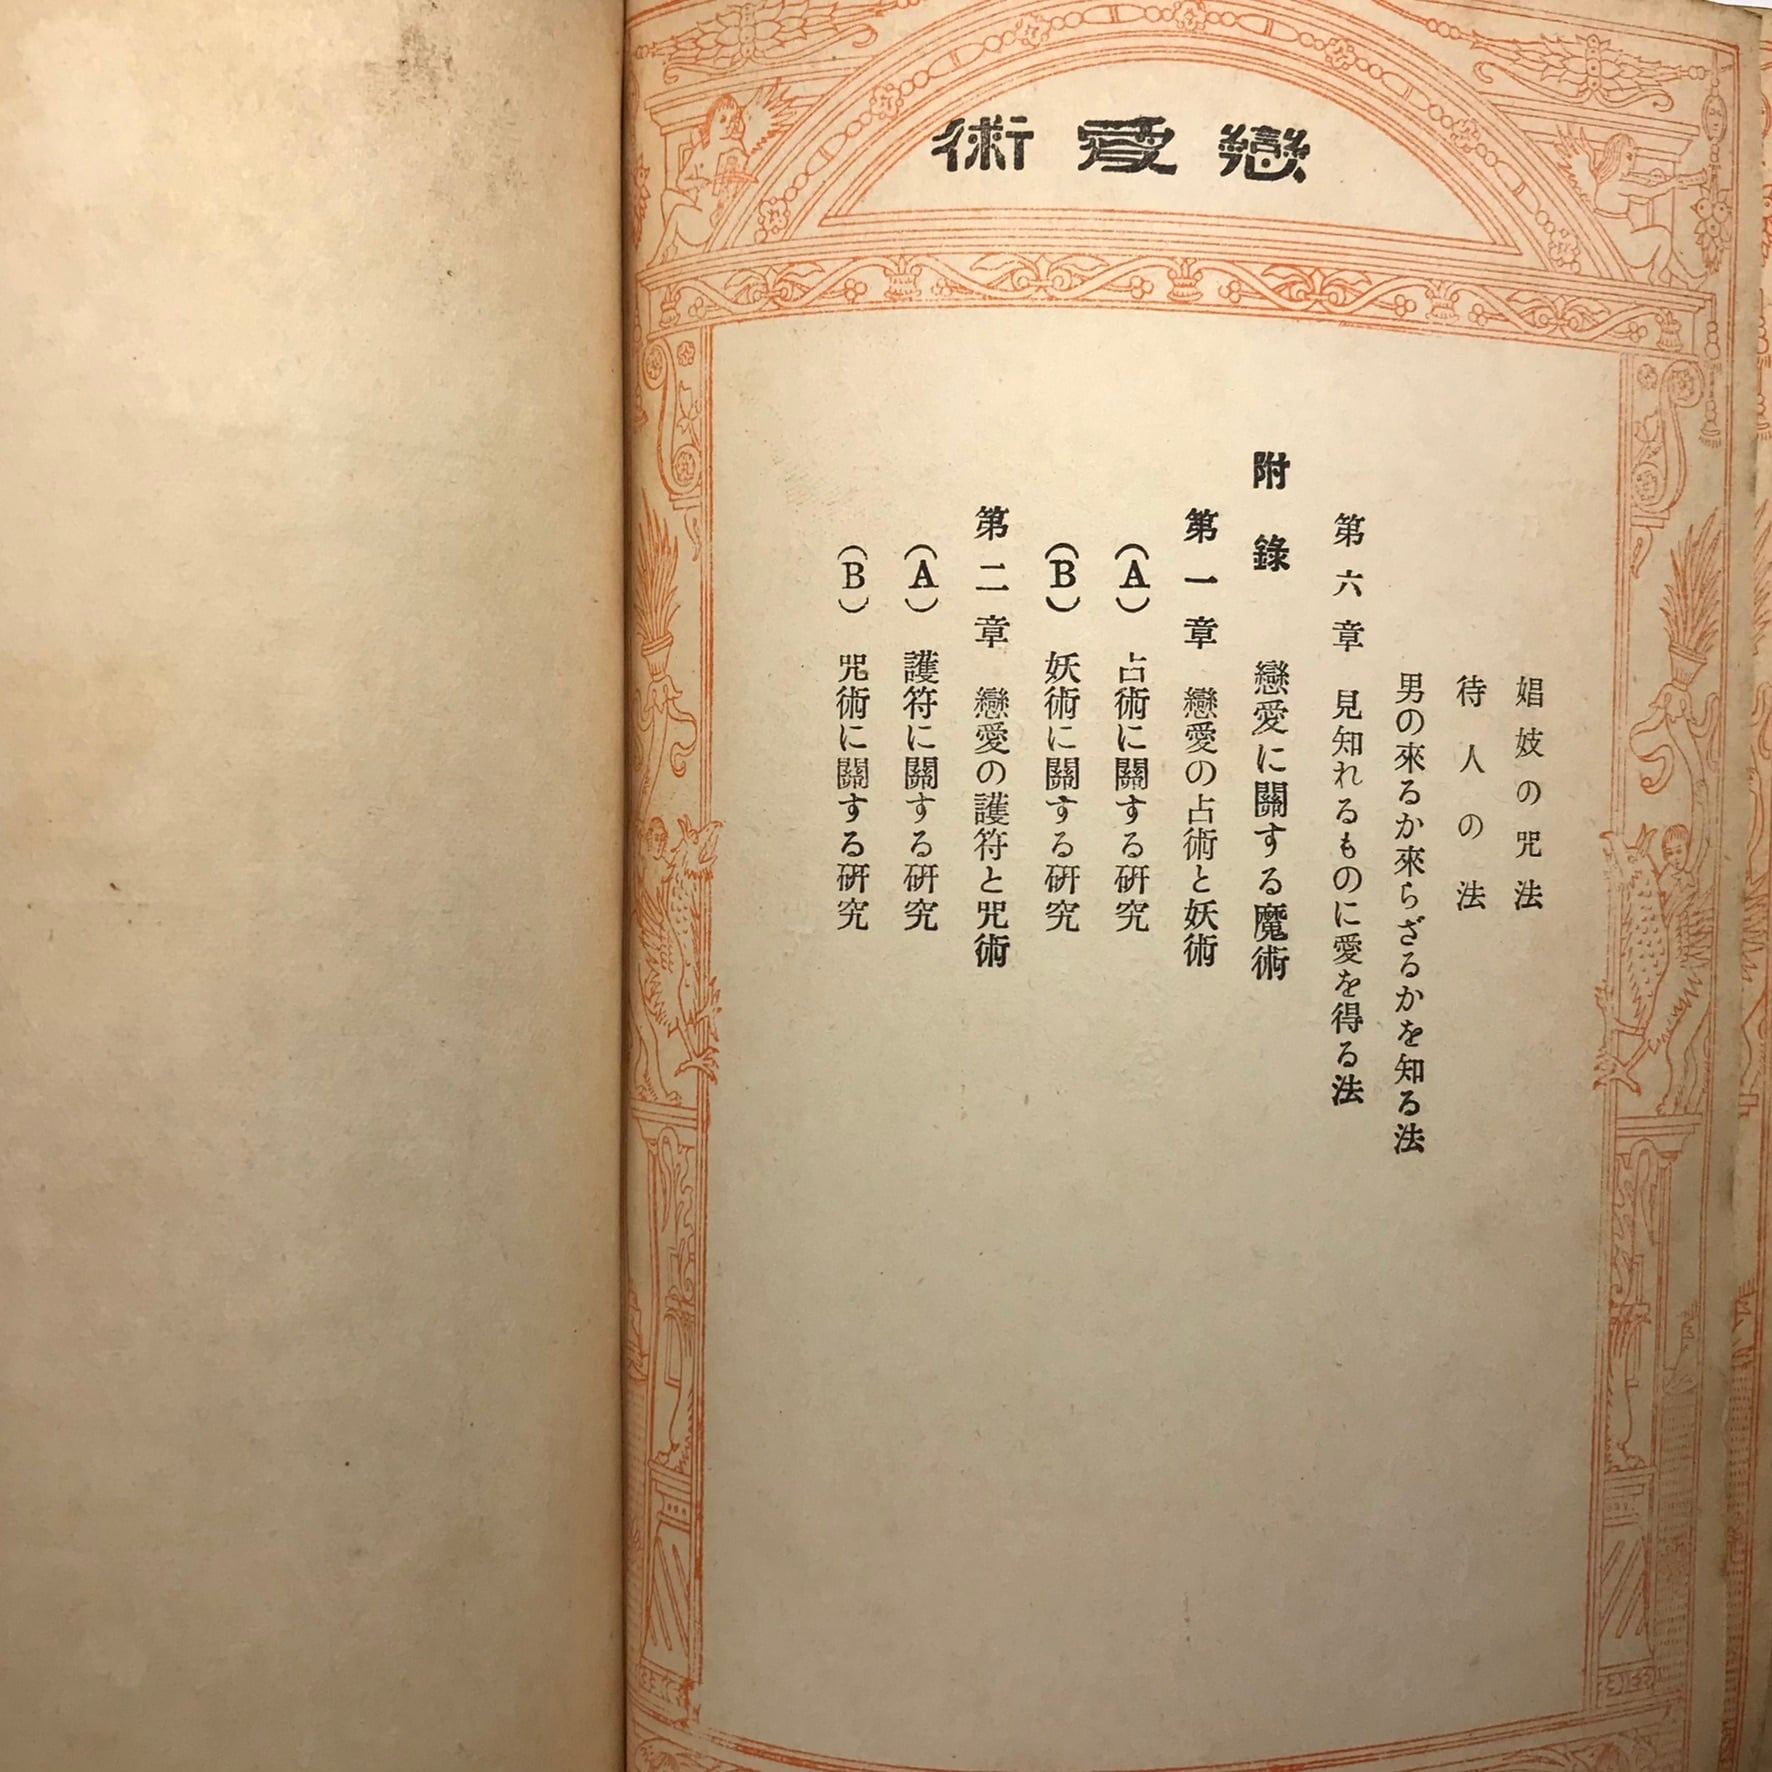 戀愛術
娼妓の咒法
待人の法
男の來るか來らざるかを知る法
第六章 見知れるものに愛を得る法
附錄 戀愛に關する魔術
第一章 戀愛の占術と妖術
(A) 占術に關する硏究
(B) 妖術に關する硏究
第二章 戀愛の護符と咒術
(A) 護符に關する硏究
(B) 咒術に關する硏究